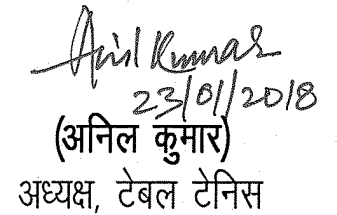 Anil Kumar
23/01/2018
(अनिल कुमार)
अध्यक्ष, टेबल टेनिस